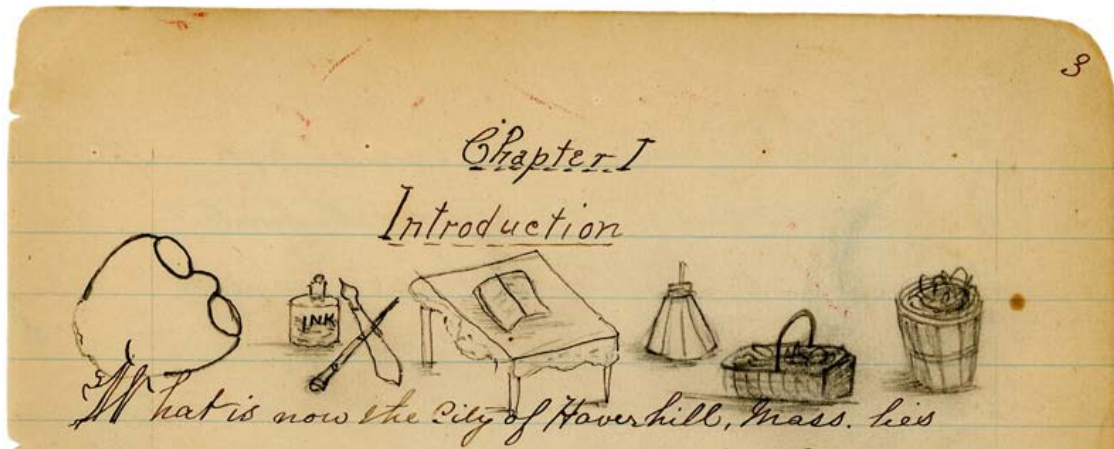 3
Chapter I
Introduction
INK
What is now the City of Haverhill, Mass. lies